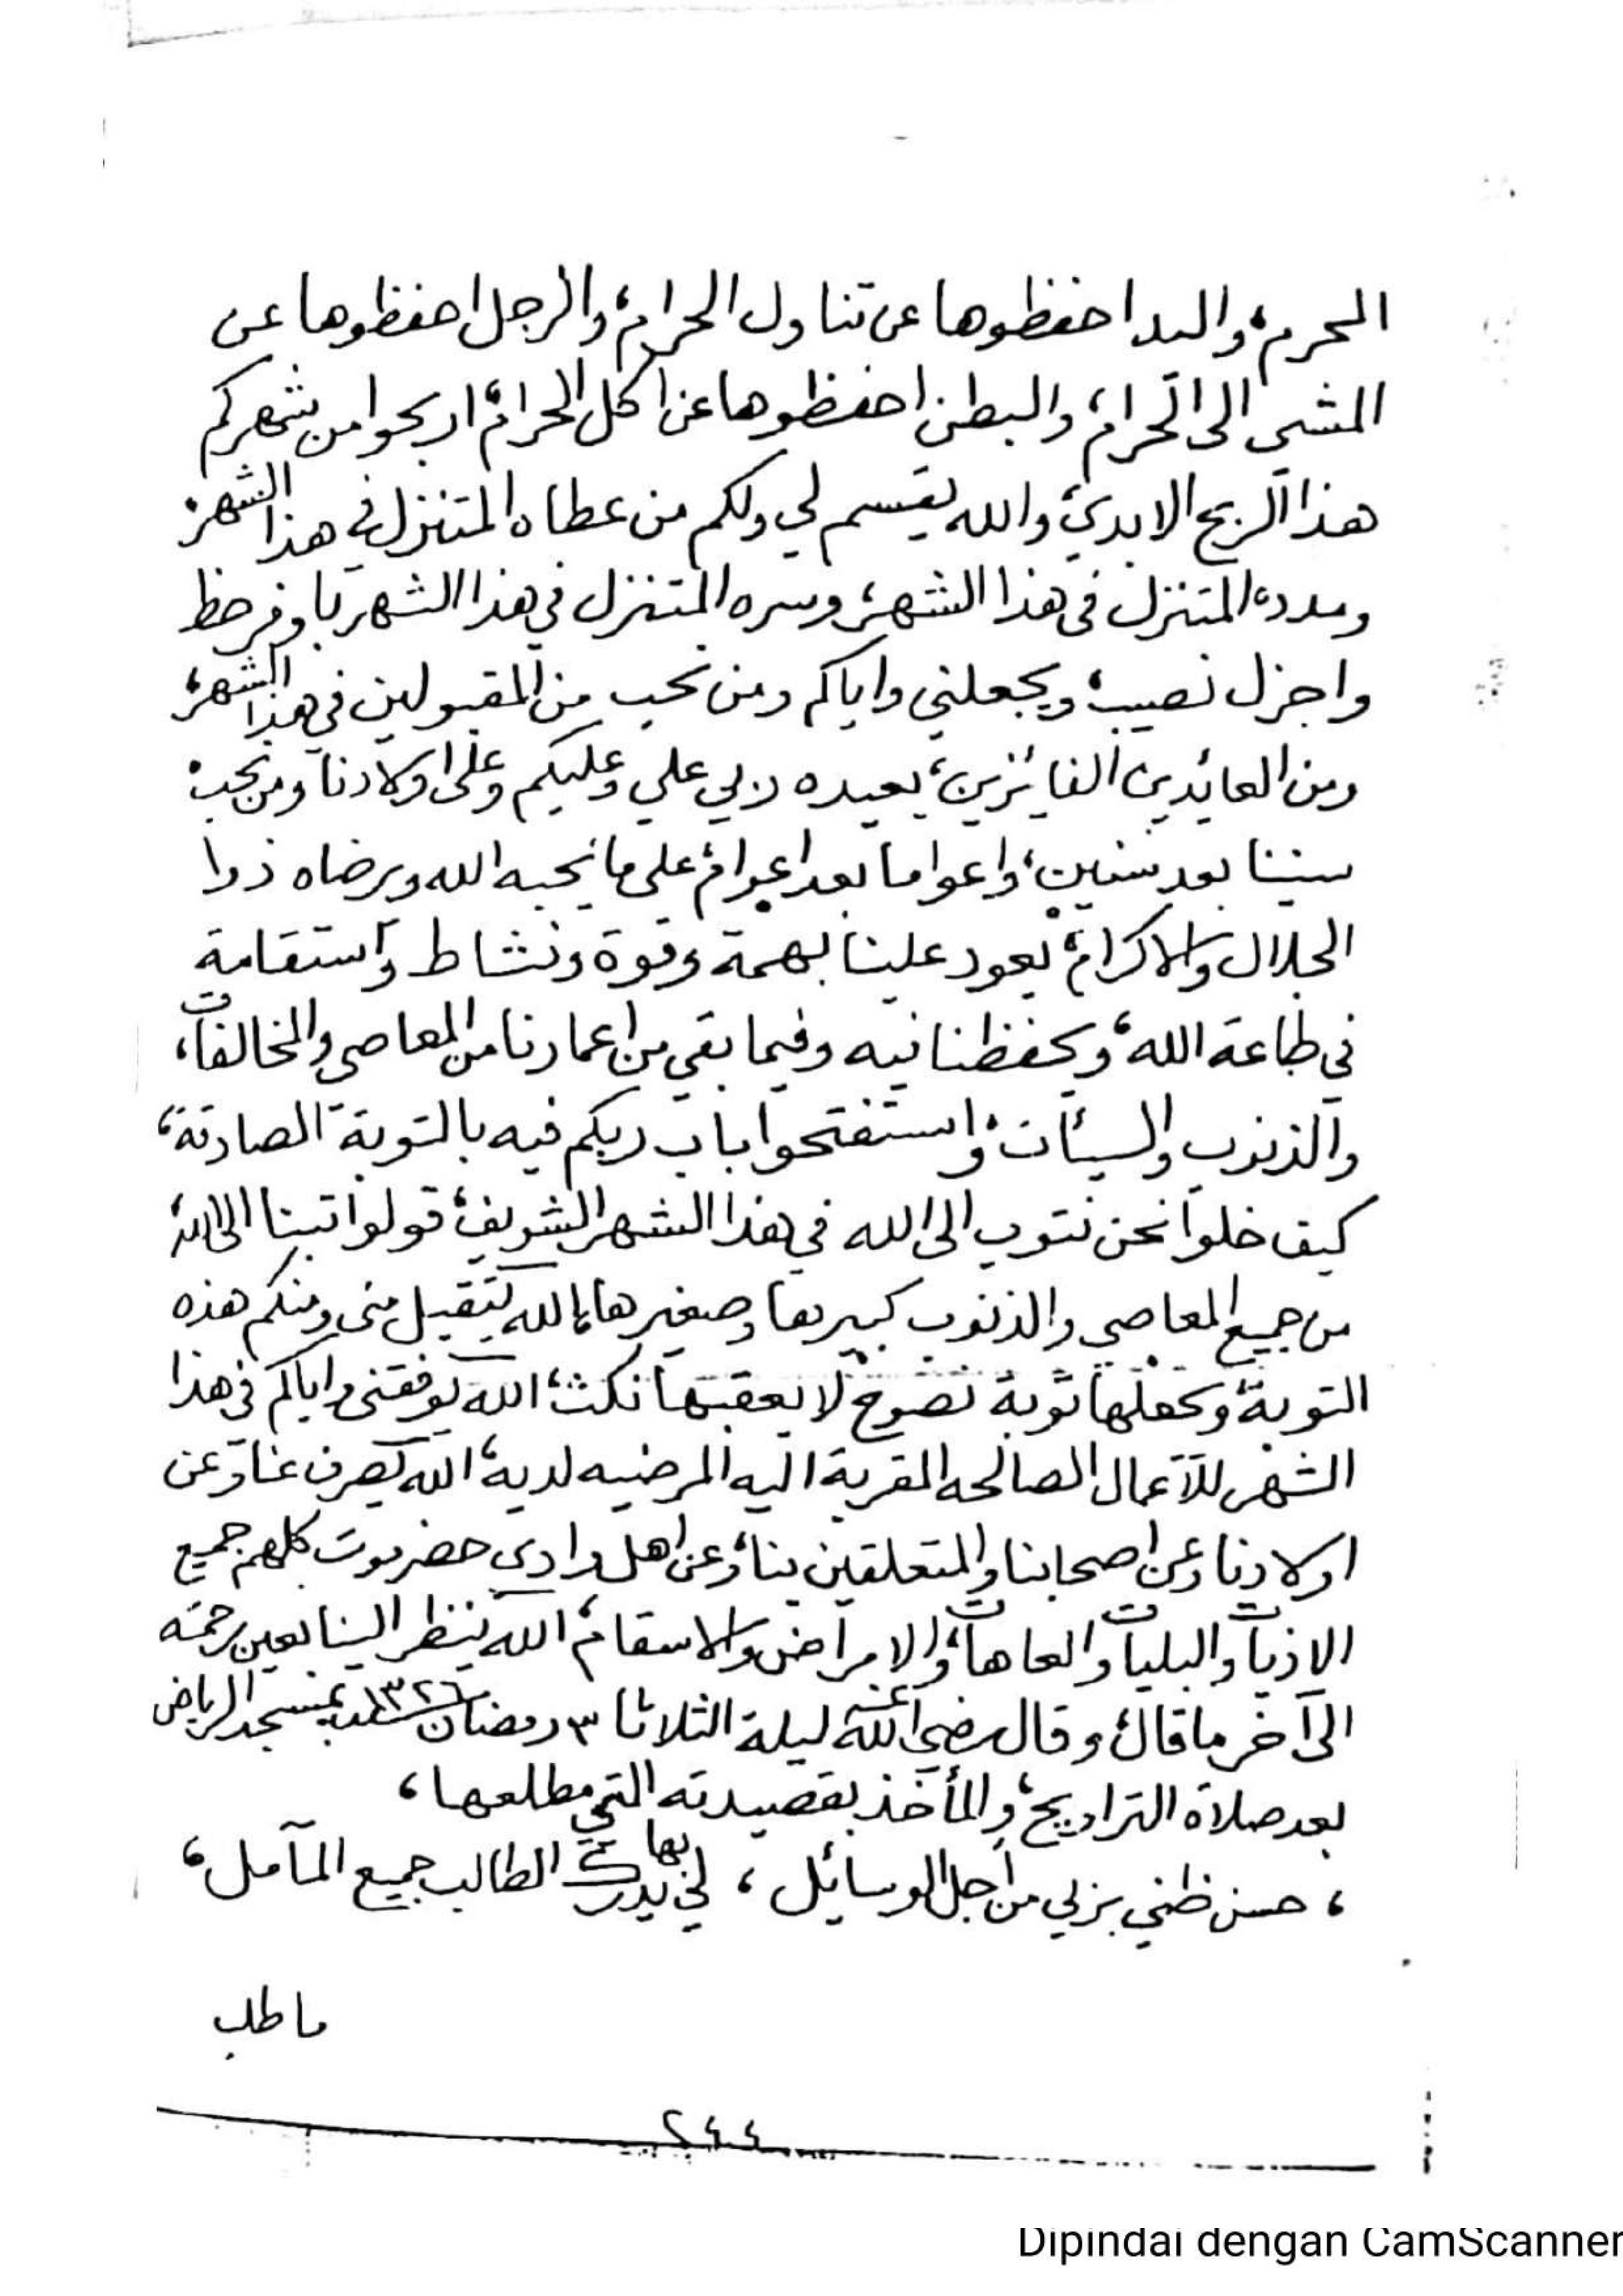 المحرم، واليد احفظوها عن تناول الحرام، والرجل احفظوها عن
المشي الى الحرام، والبطن احفظوها عن اكل الحرام، اربحوا من شهركم
هذا الربح الابدي، والله يقسم لي ولكم من عطاه المتنزل في هذا الشهر،
ومدده المتنزل في هذا الشهر، وسره المتنزل في هذا الشهر باوفر حظ
واجزل نصيب، ويجعلني واياكم ومن نحب من المقبولين في هذا الشهر،
ومن العائدين الفائزين، يعيده ربي علي وعليكم وعلى اولادنا ومن نحب،
سنينا بعد سنين، واعواما بعد اعوام، على ما يحبه الله ويرضاه ذوا
الجلال والاكرام، يعود علينا بهمة وقوة ونشاط واستقامة
في طاعة الله، ويحفظنا فيه وفيما بقي من اعمارنا من المعاصي والمخالفات،
والذنوب والسيئات، واستفتحوا باب ربكم فيه بالتوبة الصادقة،
كيف خلوا نحن نتوب الى الله في هذا الشهر الشريف، قولوا تبنا الى الله
من جميع المعاصي والذنوب كبيرها وصغيرها، الله يتقبل مني ومنكم هذه
التوبة، ويجعلها توبة نصوح لا يعقبها نكث، الله يوفقني واياكم في هذا
الشهر للأعمال الصالحه المقربة اليه المرضيه لديه، الله يصرف عنا وعن
اولادنا وعن اصحابنا والمتعلقين بنا، وعن اهل وادي حضرموت كلهم جميع
الاذيات والبليات والعاهات، والامراض والاسقام، الله ينظر الينا بعين رحمته
الى آخر ما قال، وقال رضي الله عنه ليلة الثلاثا ٣ رمضان ١٣٢٦ بمسجد الرياض
بعد صلاة التراويح، والمأخذ بقصيدته التي مطلعها،
، حسن ظني بربي من اجل الوسائل، لي بها يدرك الطالب جميع المآمل،
ما طلب
٢٤٤
Dipindai dengan CamScanner